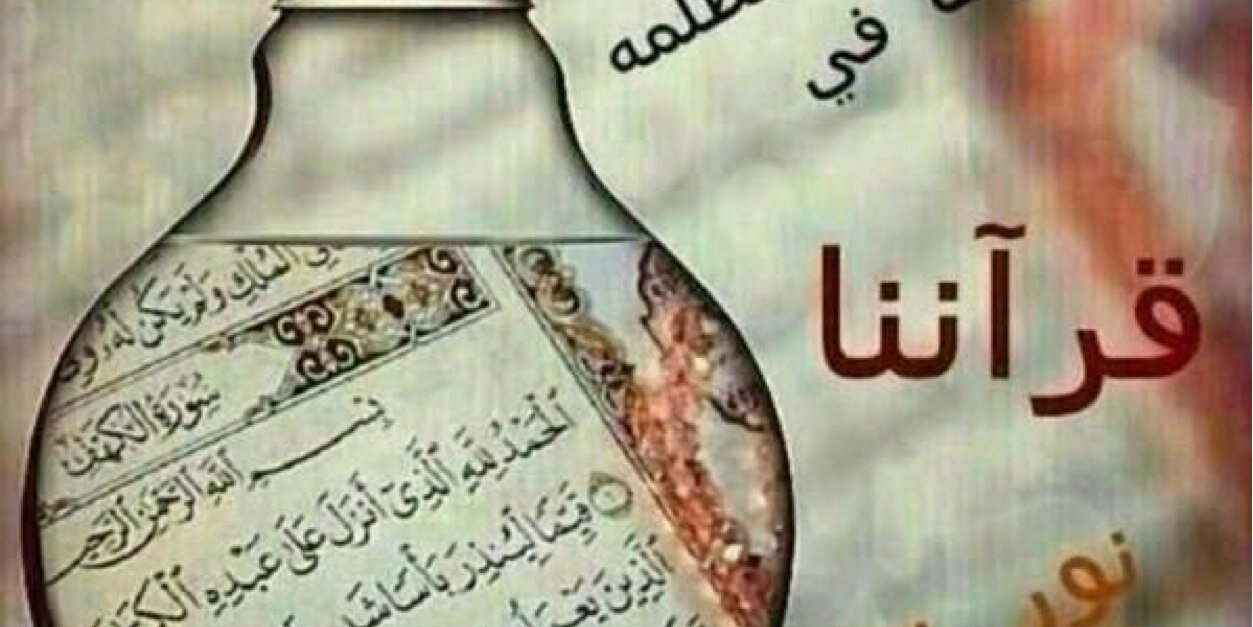 في
قرآننا
نور
في الملك ولم يكن له ولي
سُورَةُ الكَهْفِ
بِسْمِ اللَّهِ الرَّحْمَٰنِ الرَّحِيمِ
الْحَمْدُ لِلَّهِ الَّذِي أَنزَلَ عَلَىٰ عَبْدِهِ
قَيِّمًا لِّيُنذِرَ بَأْسًا
الَّذِينَ